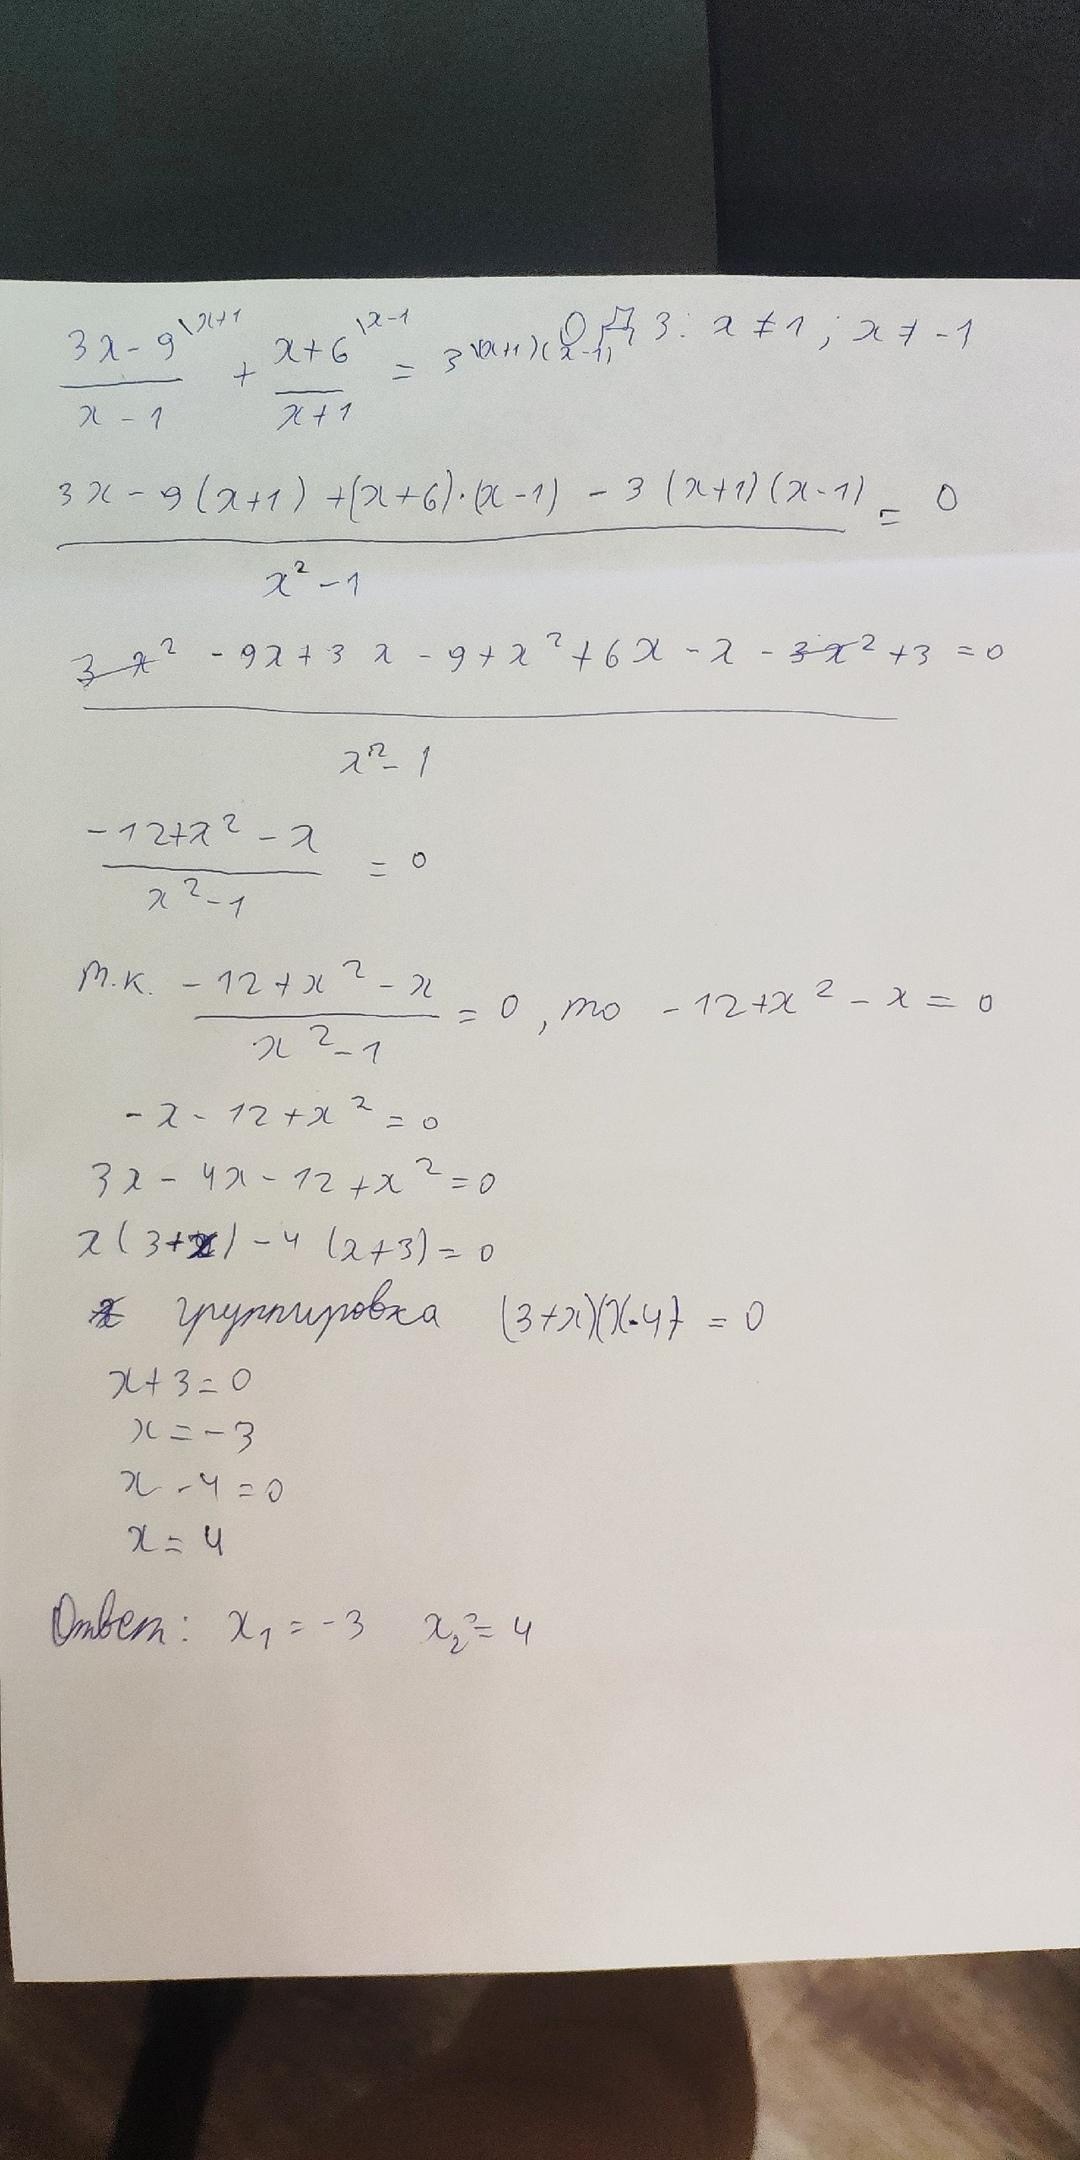 (3x-9)/(x-1) \x+1 + (x+6)/(x+1) \x-1 = 3 \(x+1)(x-1) ОДЗ: x ≠ 1 ; x ≠ -1
(3x - 9(x+1) + (x+6)·(x-1) - 3(x+1)(x-1))/(x² - 1) = 0
(3x² - 9x + 3x - 9 + x² + 6x - x - 3x² + 3 = 0)/(x² - 1)
(-12+x² - x)/(x² - 1) = 0
т.к. (-12+x² - x)/(x² - 1) = 0, то -12+x² - x = 0
-x - 12 + x² = 0
3x - 4x - 12 + x² = 0
x(3+x) - 4 (x+3) = 0
группировка (3+x)(x-4) = 0
x+3=0
x=-3
x-4=0
x=4
Ответ: x₁ = -3 x₂ = 4